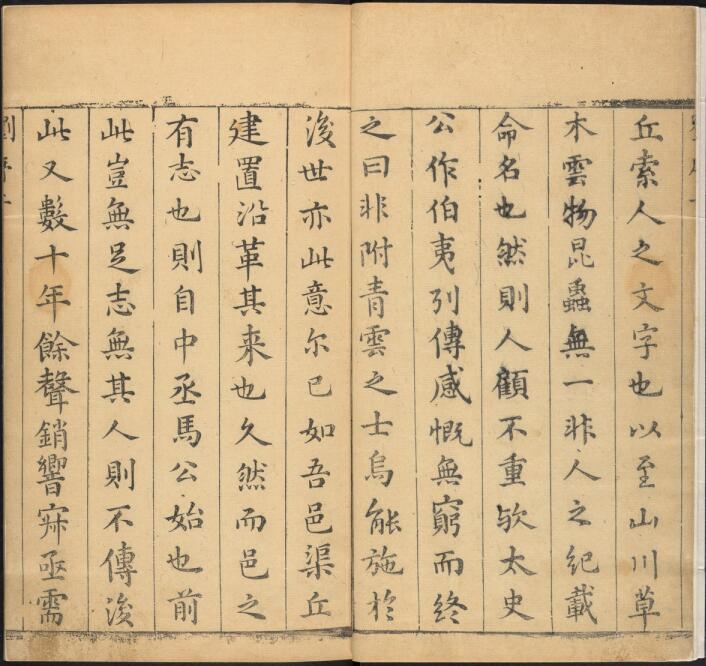 丘索人之文字也以至山川草
木雲物昆蟲無一非人之紀載
命名也然則人顧不重歟太史
公作伯夷列傳感慨無窮而終
之曰非附青雲之士烏能施於
後世亦此意尔已如吾邑渠丘
建置沿革其来也久然而邑之
有志也則自中丞馬公始也前
此豈無足志無其人則不傳後
此又數十年餘聲銷響寂亟需